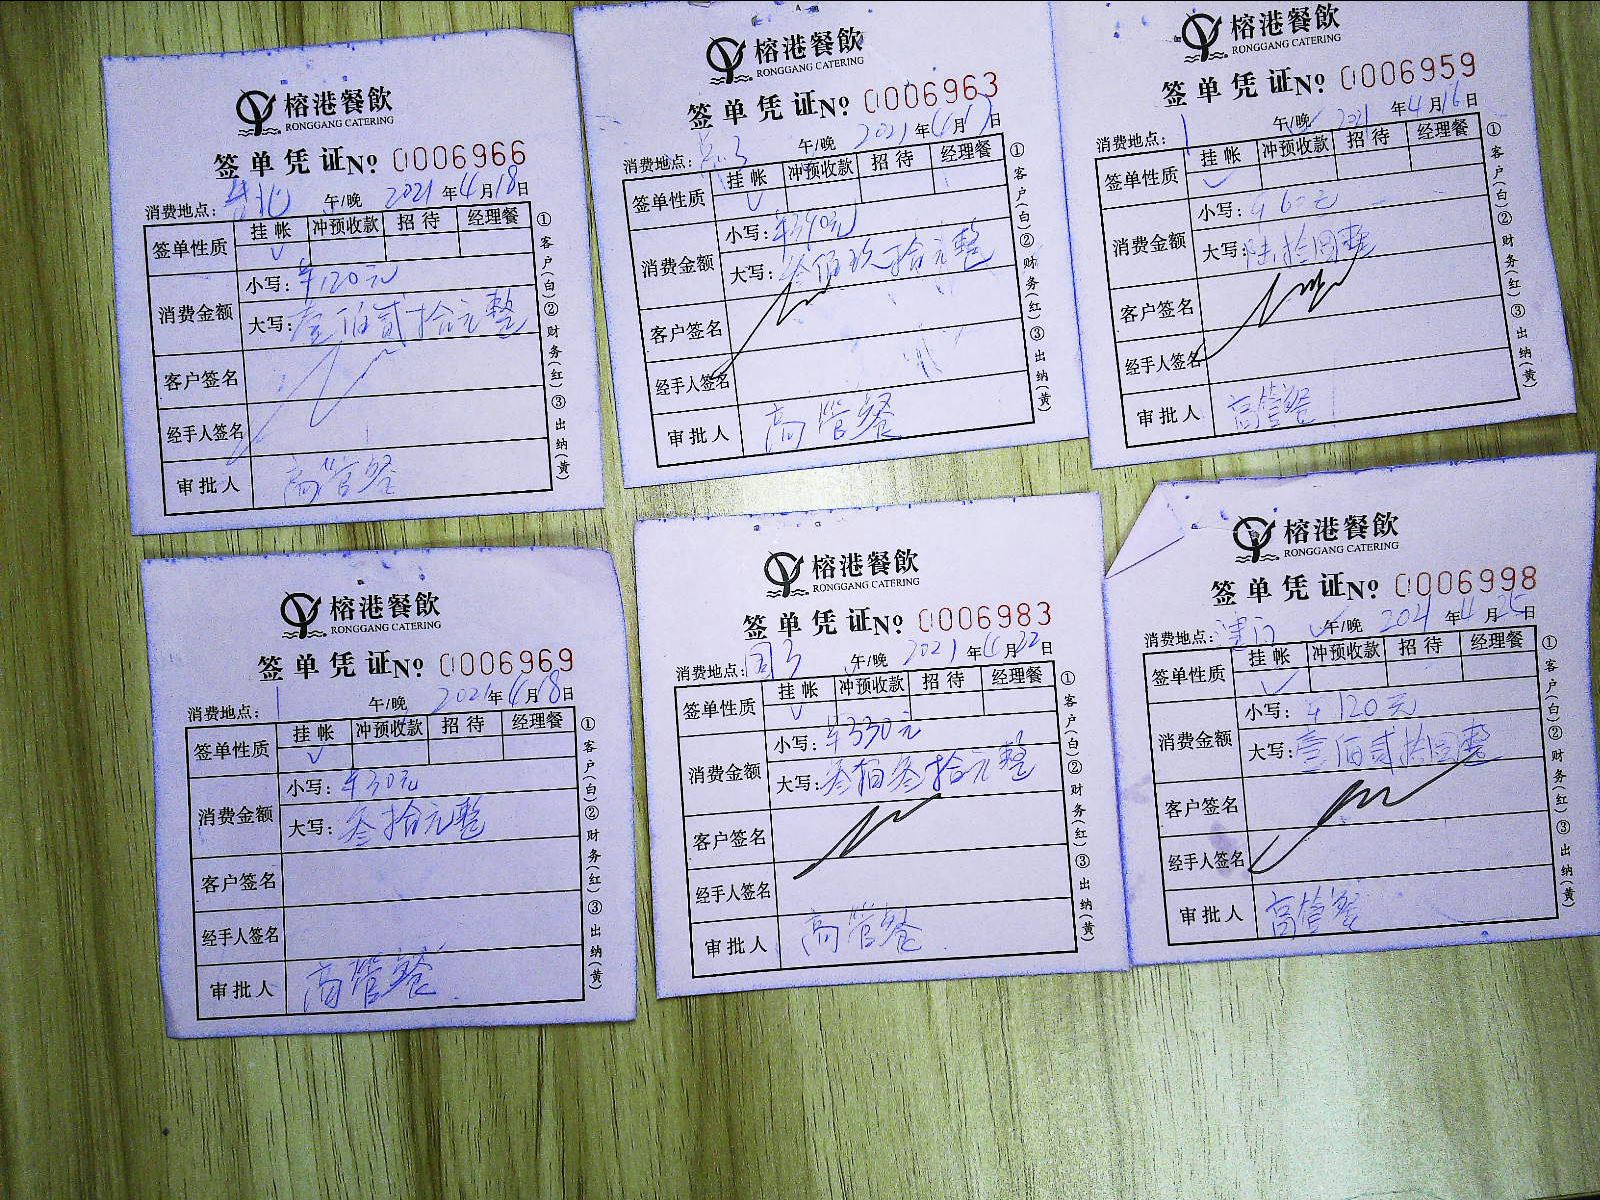 榕港餐飲
RONGGANG CATERING
签单凭证№ 0006966
消费地点: 午/晚 2021年4月18日
签单性质 挂帐 冲预收款 招待 经理餐
√
消费金额 小写: ¥120元
大写: 壹佰贰拾元整
客户签名
经手人签名
审批人 高管餐
①客户(白)②财务(红)③出纳(黄)
榕港餐飲
RONGGANG CATERING
签单凭证№ 0006963
消费地点: 午/晚 2021年4月17日
签单性质 挂帐 冲预收款 招待 经理餐
√
消费金额 小写: ¥390元
大写: 叁佰玖拾元整
客户签名
经手人签名
审批人 高管餐
①客户(白)②财务(红)③出纳(黄)
榕港餐飲
RONGGANG CATERING
签单凭证№ 0006959
消费地点: 午/晚 2021年4月16日
签单性质 挂帐 冲预收款 招待 经理餐
√
消费金额 小写: ¥60元
大写: 陆拾圆整
客户签名
经手人签名
审批人 高管餐
①客户(白)②财务(红)③出纳(黄)
榕港餐飲
RONGGANG CATERING
签单凭证№ 0006969
消费地点: 午/晚 2021年4月18日
签单性质 挂帐 冲预收款 招待 经理餐
√
消费金额 小写: ¥30元
大写: 叁拾元整
客户签名
经手人签名
审批人 高管餐
①客户(白)②财务(红)③出纳(黄)
榕港餐飲
RONGGANG CATERING
签单凭证№ 0006983
消费地点: 午/晚 2021年4月22日
签单性质 挂帐 冲预收款 招待 经理餐
√
消费金额 小写: ¥330元
大写: 叁佰叁拾元整
客户签名
经手人签名
审批人 高管餐
①客户(白)②财务(红)③出纳(黄)
榕港餐飲
RONGGANG CATERING
签单凭证№ 0006998
消费地点: 午/晚 2021年4月 日
签单性质 挂帐 冲预收款 招待 经理餐
√
消费金额 小写: ¥120元
大写: 壹佰贰拾圆整
客户签名
经手人签名
审批人 高管餐
①客户(白)②财务(红)③出纳(黄)